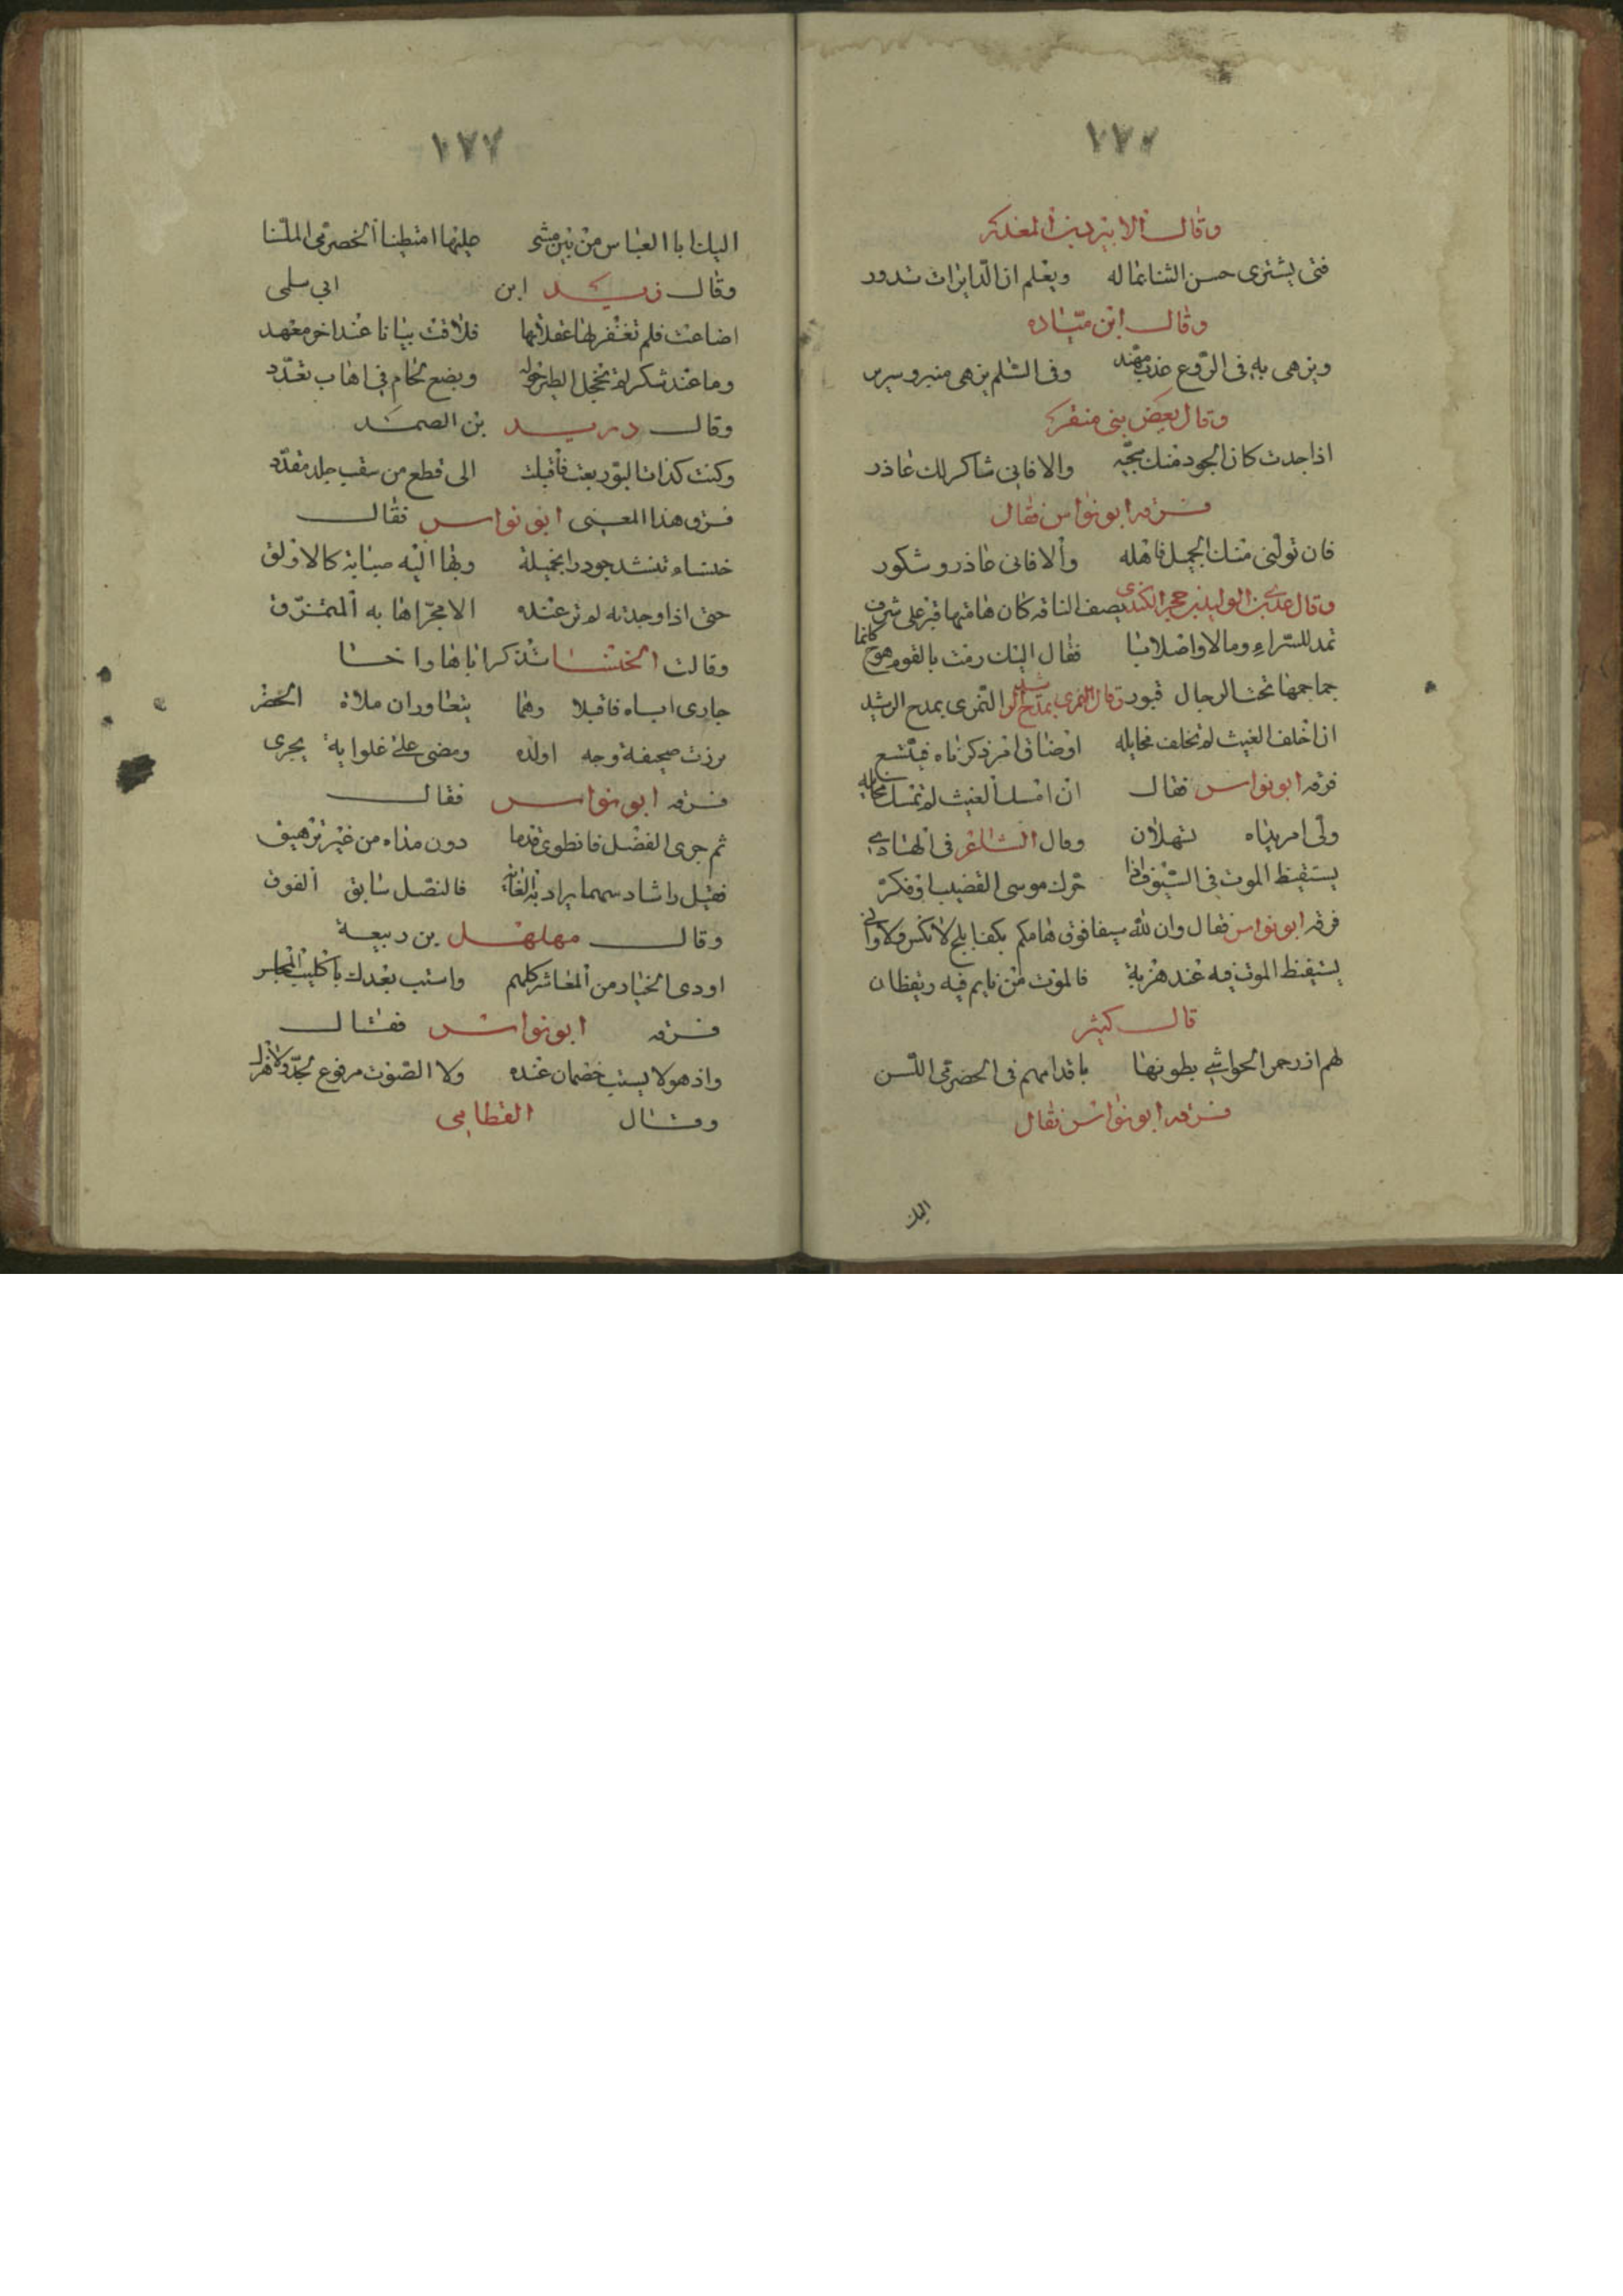 ١٧٦
وقال الابيرد بن المعذر
فتى يشترى حسن الثنا بماله ويعلم ان الدايرات تدور
وقال ابن ميّاده
ويزهى به فى الرّوع عذب مهند وفى السّلم يزهى منبر وسرير
وقال بعض بنى منقر
اذا جدت كان الجود منك سجيّه والا فانى شاكر لك عاذر
فسرقه ابو نواس فقال
فان تولنى منك الجميل فاهله والا فانى عاذر وشكور
وقال عدى بن الوليد بن حجر الكندى يصف الناقه كان هامتها قبر على شرف
تمد للسّراء وما لا واصلابا فقال اليك رمت بالقوم هوج كانما
جماجمها تحت الرحال قبور وقال النمرى يمدح الرشيد النّمرى يمدح الرشيد
ان اخلف الغيث لم تخلف مخايله او ضاق امر ذكرناه فيتّسع
فرقه ابو نواس فقال ان امسك الغيث لم تمسك مخايله
ولى امريناه نهلان وقال الشاعر فى الهادى
يستيقظ الموت فى السّيوف اذا حرك موسى القضيب او فكرّ
فرقه ابو نواس فقال وان لله سيفا فوق هامكم بكف ابلج لا نكس ولا وانى
يستيقظ الموت فيه عند هزبة فالموت من نايم فيه ويقظان
قال كثير
لهم ازر حمر الحواشى بطونها باقدامهم فى الحضرمى اللسن
فسرقه ابو نواس فقال
اليك
١٧٧
اليك ابا العباس من بين من مشى عليها امتطينا الخضرمى الملسّنا
وقال زيد ابن ابى سلمى
اضاعت فلم تغفر لها غفلاتها فلاقت بيانا عند اخر معهد
وما عند شكر لم تحجل الطير حوله وبضع لحام فى اهاب تقدّد
وقال دريد بن الصمة
وكنت كذات البوّ ريعت فاقبلت الى قطع من سقب جلد مقدّد
فسرق هذا المعنى ابو نواس فقال
خنساء تنشد جودرا بخميلة وبها اليه صبابة كالاولق
حتى اذا وجدته لم تر عنده الا مجرّ اهابه المتمزّق
وقالت الخنساء تذكر اباها واخا
جارى اباه فاقبلا وهما يتعاوران ملاة الحضر
برزت صحيفة وجه والده ومضى على غلوايه يجرى
فسرقه ابو نواس فقال
ثم جرى الفضل فانطوى قدما دون مداه من غير ترهيق
فقيل راشا سهما يراد به الغاية فالنصل سابق الفوق
وقال مهلهل بن ربيعة
اودى الخيار من المعاشر كلهم واستب بعدك يا كليب المجلس
فسرقه ابو نواس فقال
واذ هو لا يستب خصمان عنده ولا الصوت مرفوع بجدّ ولا هزل
وقال القطامى